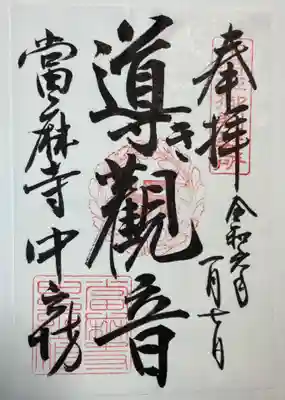 奉拝
令和六年
一月十日
導き觀音
當麻寺 中之坊